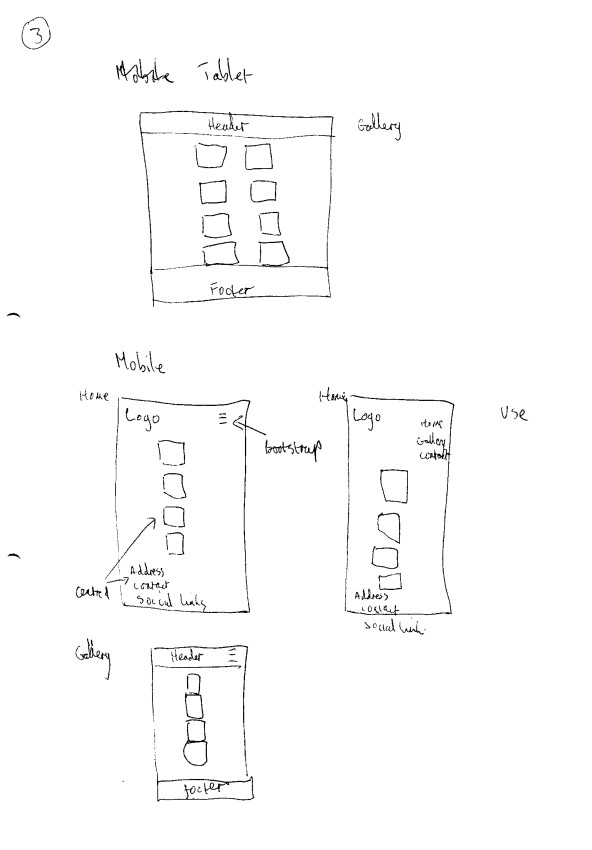 3
Mobile Tablet
Header
Gallery
Footer
Mobile
Home
Logo
bootstrap
Address
Contact
Social Links
Home
Logo
Home
Gallery
Contact
Address
Contact
Social Link
Use
Gallery
Header
footer